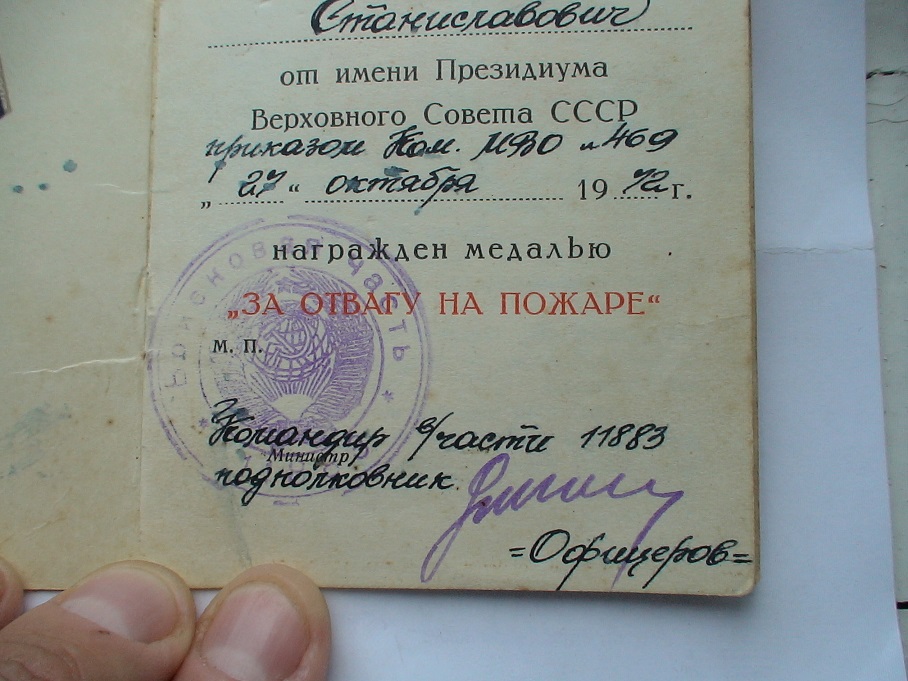 Станиславович
от имени Президиума
Верховного Совета СССР
приказом Ком. МВО № 469
„ 27 “ октября 1972 г.
награжден медалью
„ЗА ОТВАГУ НА ПОЖАРЕ“
Войсковая часть
м. п.
Командир в/части 11883
Министр
подполковник
=Офицеров=